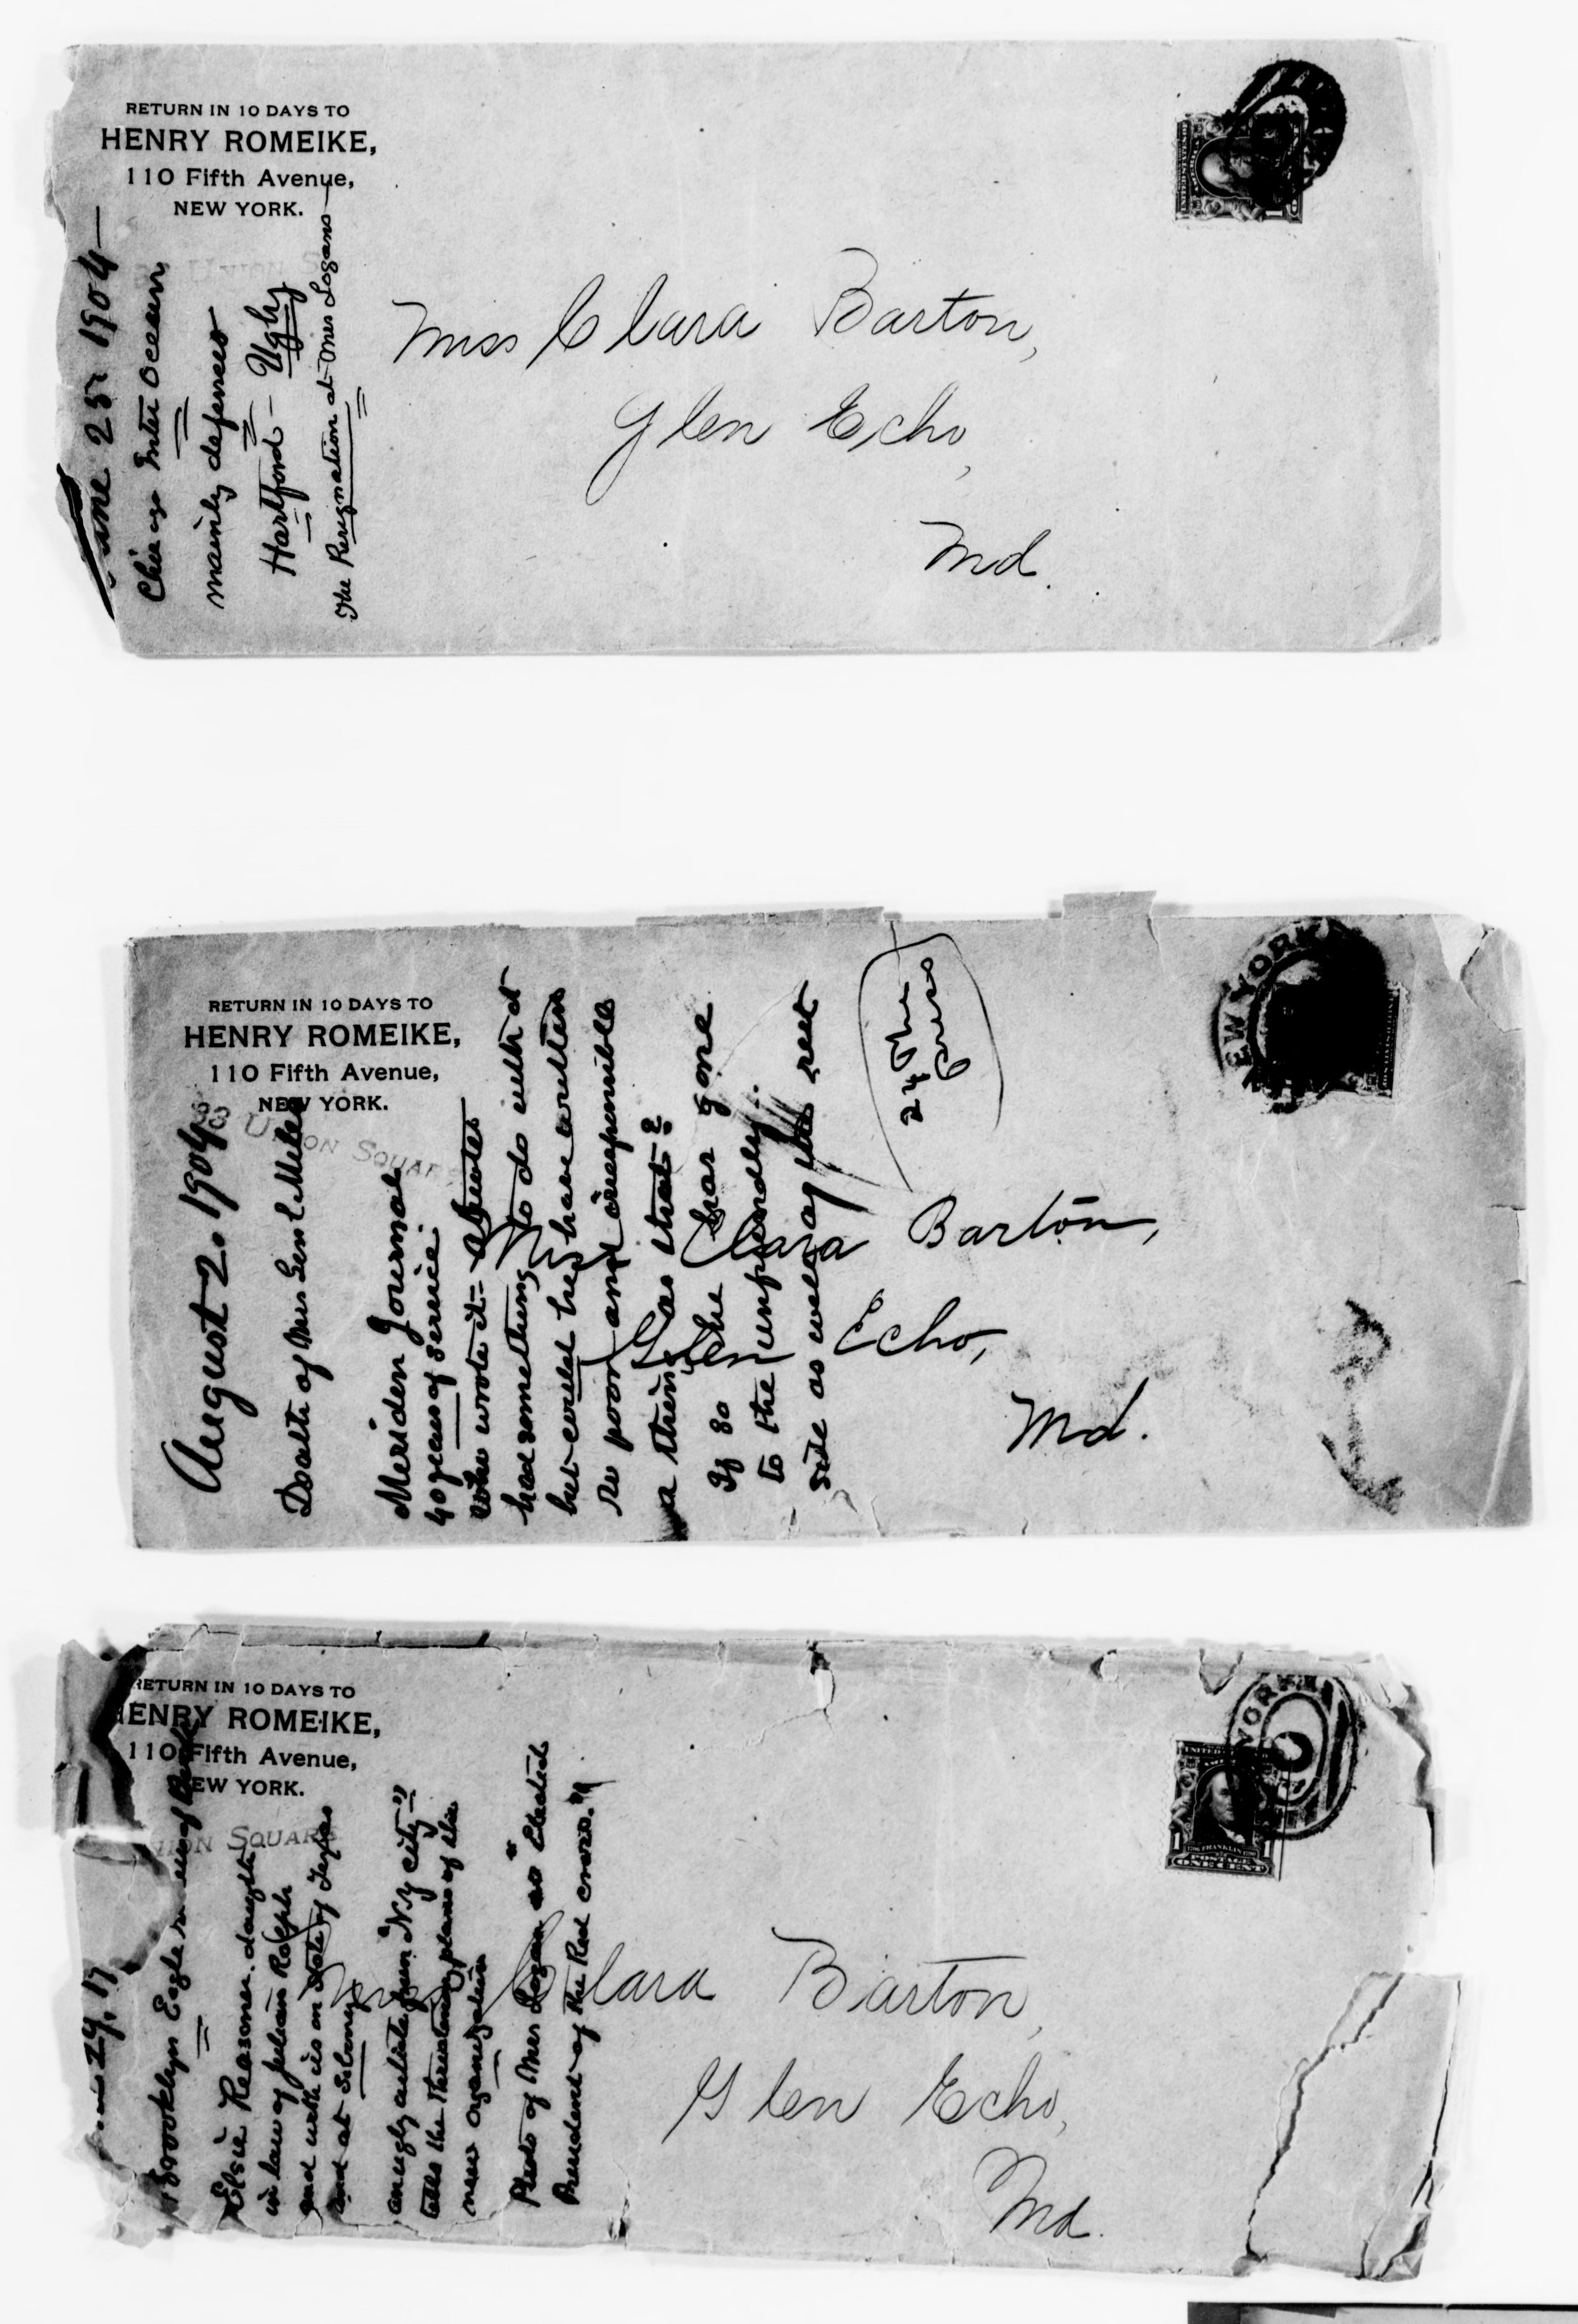 RETURN IN 10 DAYS TO
HENRY ROMEIKE,
110 Fifth Avenue,
NEW YORK.
UNION
June 25 1904 —
Chicago Inter Ocean
mainly defenses
Hartford – Ugly
The Resignation at Mrs Logans —
Miss Clara Barton,
Glen Echo,
Md.
RETURN IN 10 DAYS TO
HENRY ROMEIKE,
110 Fifth Avenue,
NEW YORK.
33 UNION SQUARE
August 2. 1904
Death of Mrs Genl Miles
Meriden Journal
40 years of service.
who wrote it –
had something to do with it
but could he have written
so poor and irresponsible
a thing as that?
If so she has gone
to the unfriendly
side as well as the rest
24 The
Press
Miss Clara Barton,
Glen Echo,
Md.
RETURN IN 10 DAYS TO
HENRY ROMEIKE,
110 Fifth Avenue,
NEW YORK.
UNION SQUARE
29, 17
Brooklyn Eagle
Elsie Reasoner daughter
in law of Julian Ralph
and with us on State of Texas
and at Siboney
an ugly article from "N.Y. City"
tells the plans of the
new organization
Photo of Mrs Logan as "Elected
President of the Red Cross."
Miss Clara Barton,
Glen Echo,
Md.
NEW YORK
POSTAGE
ONE CENT